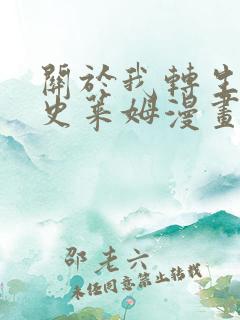 關於我轉生
史萊姆漫畫
邵老六
未經同意禁止轉載